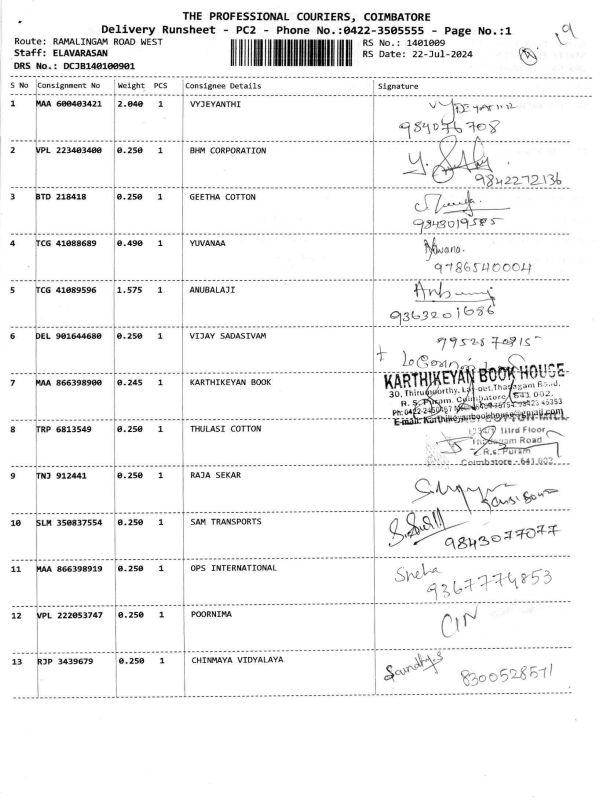 THE PROFESSIONAL COURIERS, COIMBATORE
Delivery Runsheet - PC2 - Phone No.:0422-3505555 - Page No.:1
Route: RAMALINGAM ROAD WEST RS No.: 1401009
Staff: ELAVARASAN RS Date: 22-Jul-2024
DRS No.: DCJB140100901
S No Consignment No Weight PCS Consignee Details Signature
1 MAA 600403421 2.040 1 VYJEYANTHI
9840776708
2 VPL 223403400 0.250 1 BHM CORPORATION
9842272136
3 BTD 218418 0.250 1 GEETHA COTTON
9843019585
4 TCG 41088689 0.490 1 YUVANAA
9786540004
5 TCG 41089596 1.575 1 ANUBALAJI
9363201686
6 DEL 901644680 0.250 1 VIJAY SADASIVAM
7 MAA 866398900 0.245 1 KARTHIKEYAN BOOK KARTHIKEYAN BOOK HOUSE
30, Thirumoorthy, Lay-out, Thadagam Road,
R. S. Puram, Coimbatore 641 002.
8 TRP 6813549 0.250 1 THULASI COTTON COTTON MILL
IIIrd Floor
Thadagam Road
R.S. Puram
Coimbatore - 641 002
9 TNJ 912441 0.250 1 RAJA SEKAR
10 SLM 350837554 0.250 1 SAM TRANSPORTS
9843077077
11 MAA 866398919 0.250 1 OPS INTERNATIONAL Sneha
9367774853
12 VPL 222053747 0.250 1 POORNIMA CIN
13 RJP 3439679 0.250 1 CHINMAYA VIDYALAYA
8300528571